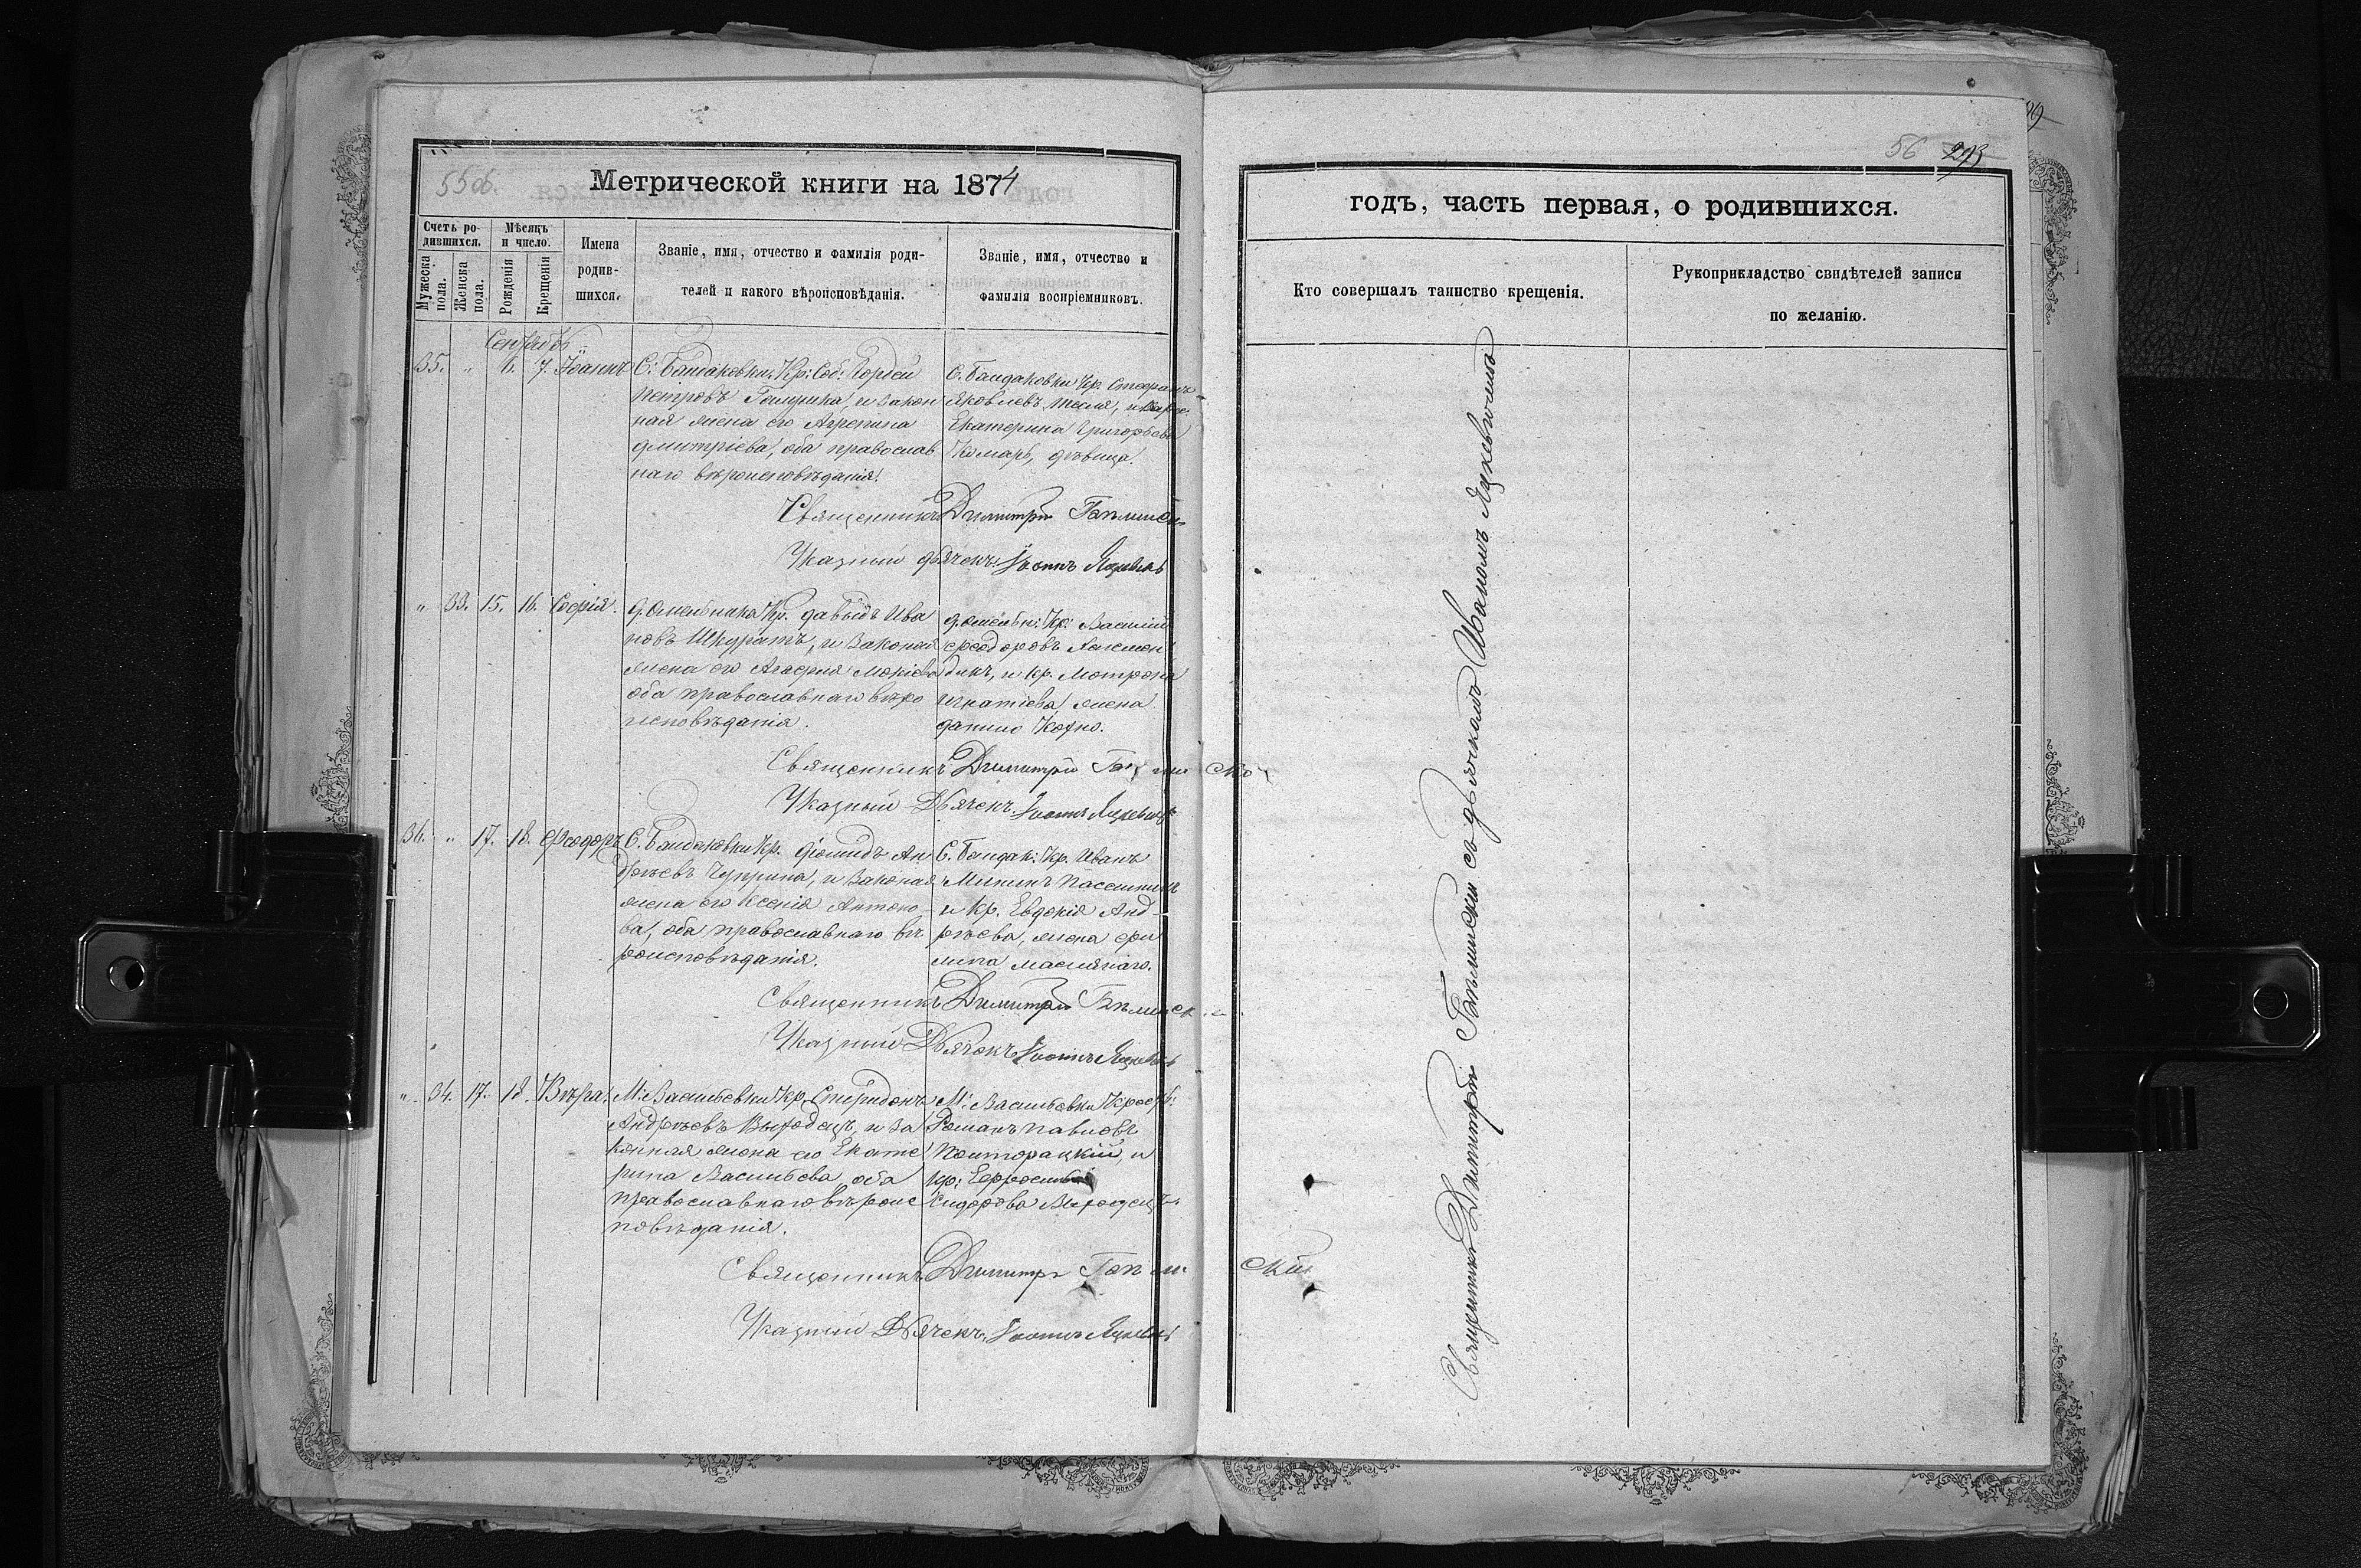 55об.
Метрической книги на 1874
Счетъ ро-
дившихся.
Мужеска
пола.
Женска
пола.
Мѣсяцъ
и число.
Рожденія
Крещенія
Имена
родив-
шихся.
Званіе, имя, отчество и фамилія роди-
телей и какого вѣроисповѣданія.
Званіе, имя, отчество и
фамилія воспріемниковъ.
Сентябрь
35. " 6. 7. Іоаннъ
С: Бандаковки Кр: Соб: Гордей
Петровъ Галушка, и закон
ная жена его Агрепина
Дмитріева, оба православ
наго вѣроисповѣданія.
С. Бандаковки Кр. Стефанъ
Яковлевъ Тесля, и
Екатерина Григорьева
Комарь, дѣвица.
Священникъ Димитрій
Указный дьячекъ Іоаннъ Яцкевичъ
" 33. 15. 16. Софія.
Кр. Давыдъ Ива
новъ Шкуратъ, и законая
жена его Мокіева
оба православнаго вѣро
исповѣданія.
Кр: Василій
Феодоровъ
и кр. Мотрона
Игнатіева жена
Данила Кохно.
Священникъ Димитрій
Указный Дьячекъ Іоаннъ Яцкевичъ
36. " 17. 18. Феодоръ
С. Бандаковки Кр. Діомидъ Ан
дреевъ Чуприна, и законая
жена его Ксенія Антоно-
ва, оба православнаго вѣ
роисповѣданія.
С. Бандак: Кр. Иванъ
Мининъ Пасешникъ
и Кр. Евдокія Анд-
реева, жена Фи
липа Маслянаго.
Священникъ Димитрій
Указный Дьячекъ Іоаннъ Яцкевичъ
" 34. 17. 18. Вѣра.
М: Васильевки Кр. Спиридонъ
Андреевъ Выходецъ, и за
конная жена его Екате
рина Васильева, оба
православнаго вѣроис
повѣданія.
М: Васильевки
Романъ Павловъ
Полторацкій, и
кр: Ефросинія
Сидорова
Священникъ Димитрій
Указный Дьячекъ Іоаннъ Яцкевичъ
56 293
годъ, часть первая, о родившихся.
Кто совершалъ таинство крещенія.
Рукоприкладство свидѣтелей записи
по желанію.
Священникъ Димитрій съ дьячкомъ Иваномъ Яцкевичемъ